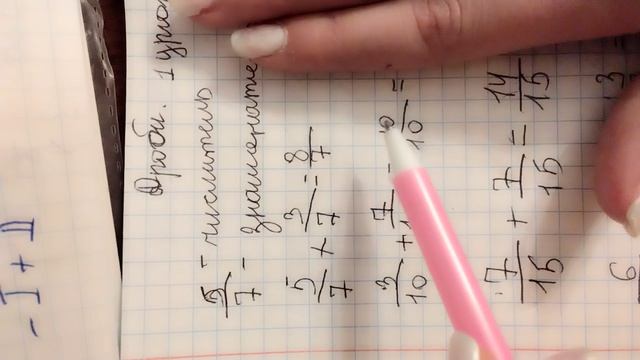 Дроби. 1 урок
5/7 - числитель
знаменатель
5/7 + 3/7 = 8/7
3/10 + 7/10 = 10/10 =
7/15 + 7/15 = 14/15
6
13
- I + II